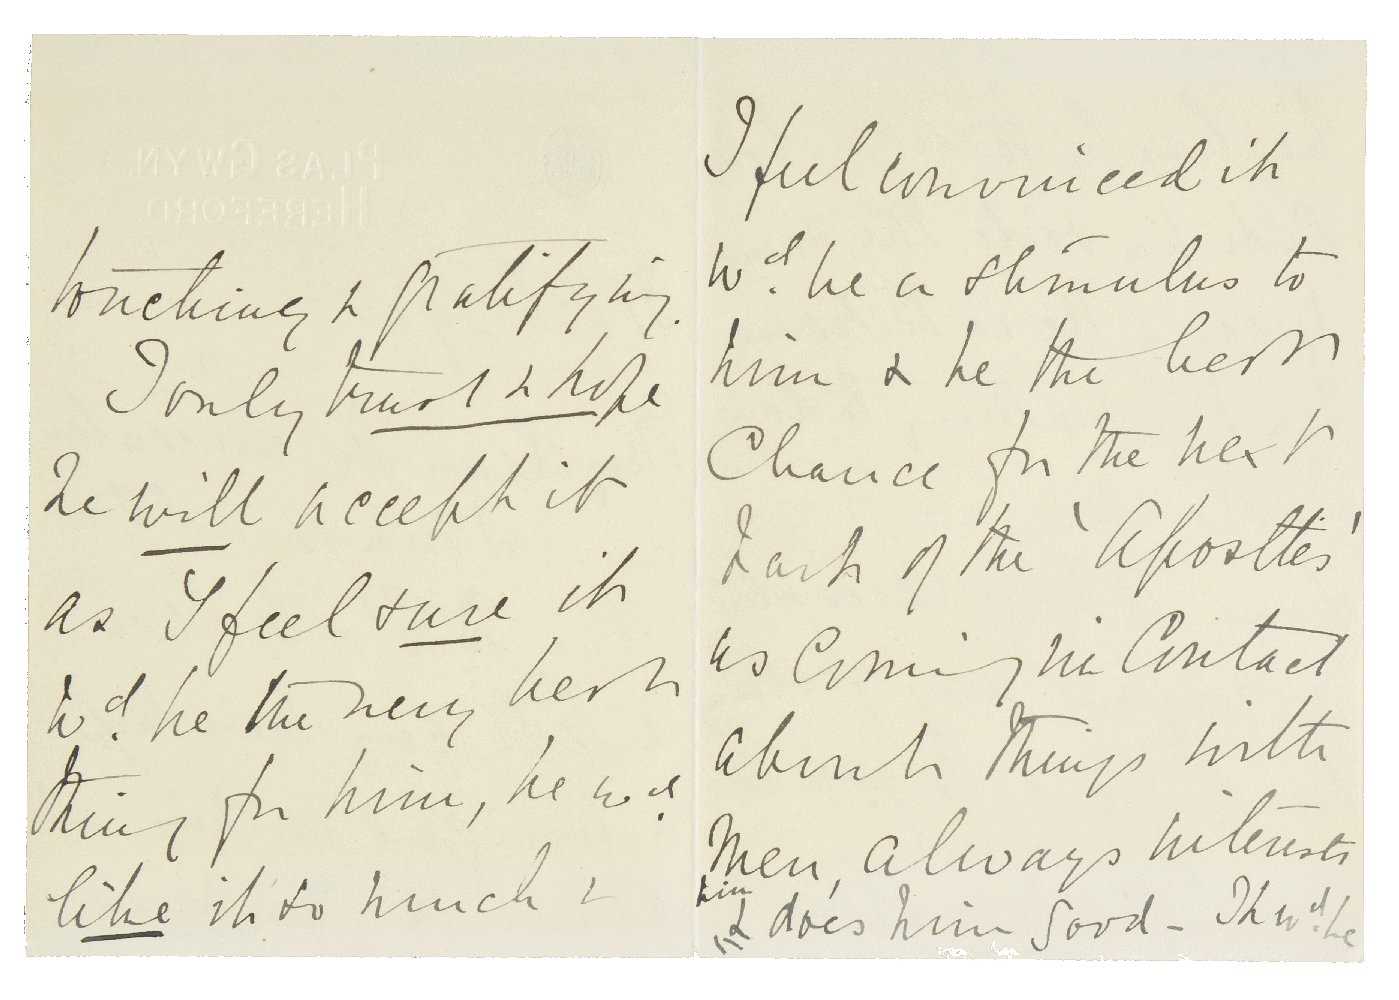 PLAS GWYN.
HEREFORD
touching & gratifying.
I only trust & hope
he will accept it
as I feel sure it
wd. be the very best
thing for him, he wd.
like it so much &
I feel convinced it
wd. be a stimulus to
him & be the best
Chance for the next
part of the 'Apostles'
as Coming in Contact
about things with
Men, always interests
him
& does him good - It wd. be